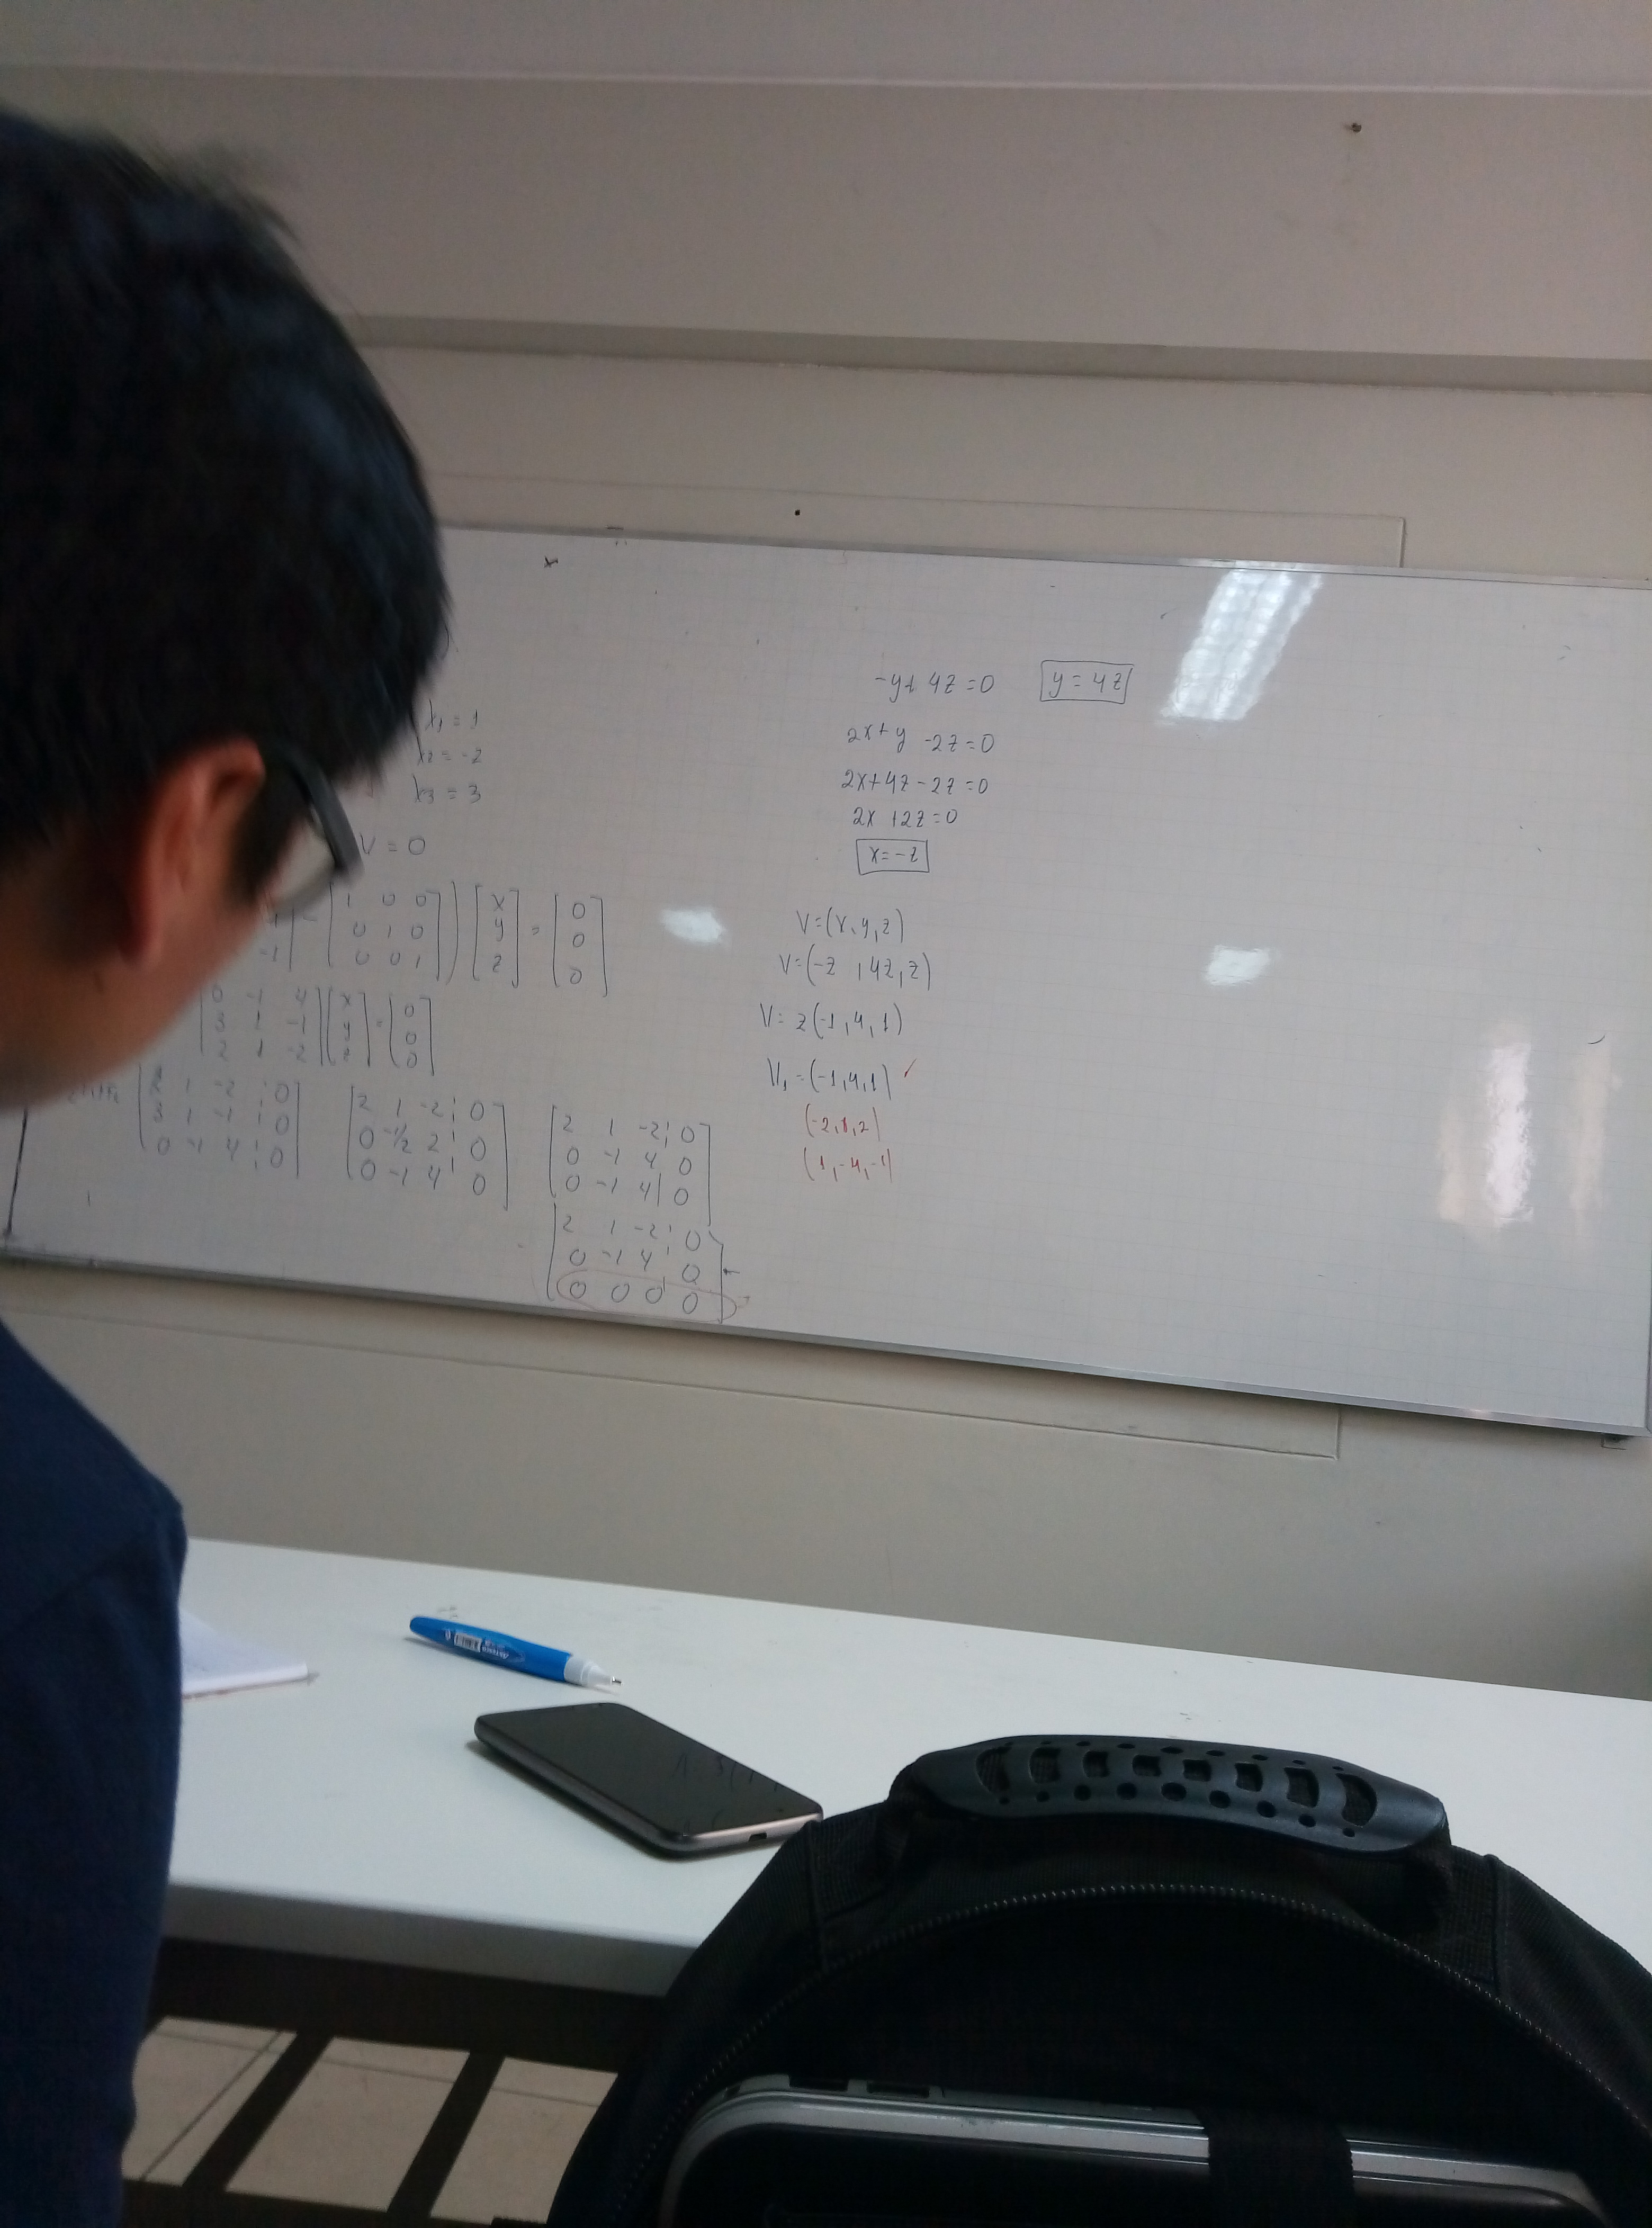 λ₁ = 1
λ₂ = -2
λ₃ = 3
V = 0
1 0 0 x 0
0 1 0 y = 0
-1 0 0 1 z 0
0 -1 4 x 0
3 1 -1 y = 0
2 1 -2 z 0
2 1 -2 0
3 1 -1 0
0 -1 4 0
2 1 -2 0
0 -1/2 2 0
0 -1 4 0
2 1 -2 0
0 -1 4 0
0 -1 4 0
2 1 -2 0
0 -1 4 0
0 0 0 0
-y+4z=0 y=4z
2x+y-2z=0
2x+4z-2z=0
2x+2z=0
x=-z
V=(x,y,z)
V=(-z,4z,z)
V=z(-1,4,1)
V₁=(-1,4,1)
(-2,8,2)
(1,-4,-1)